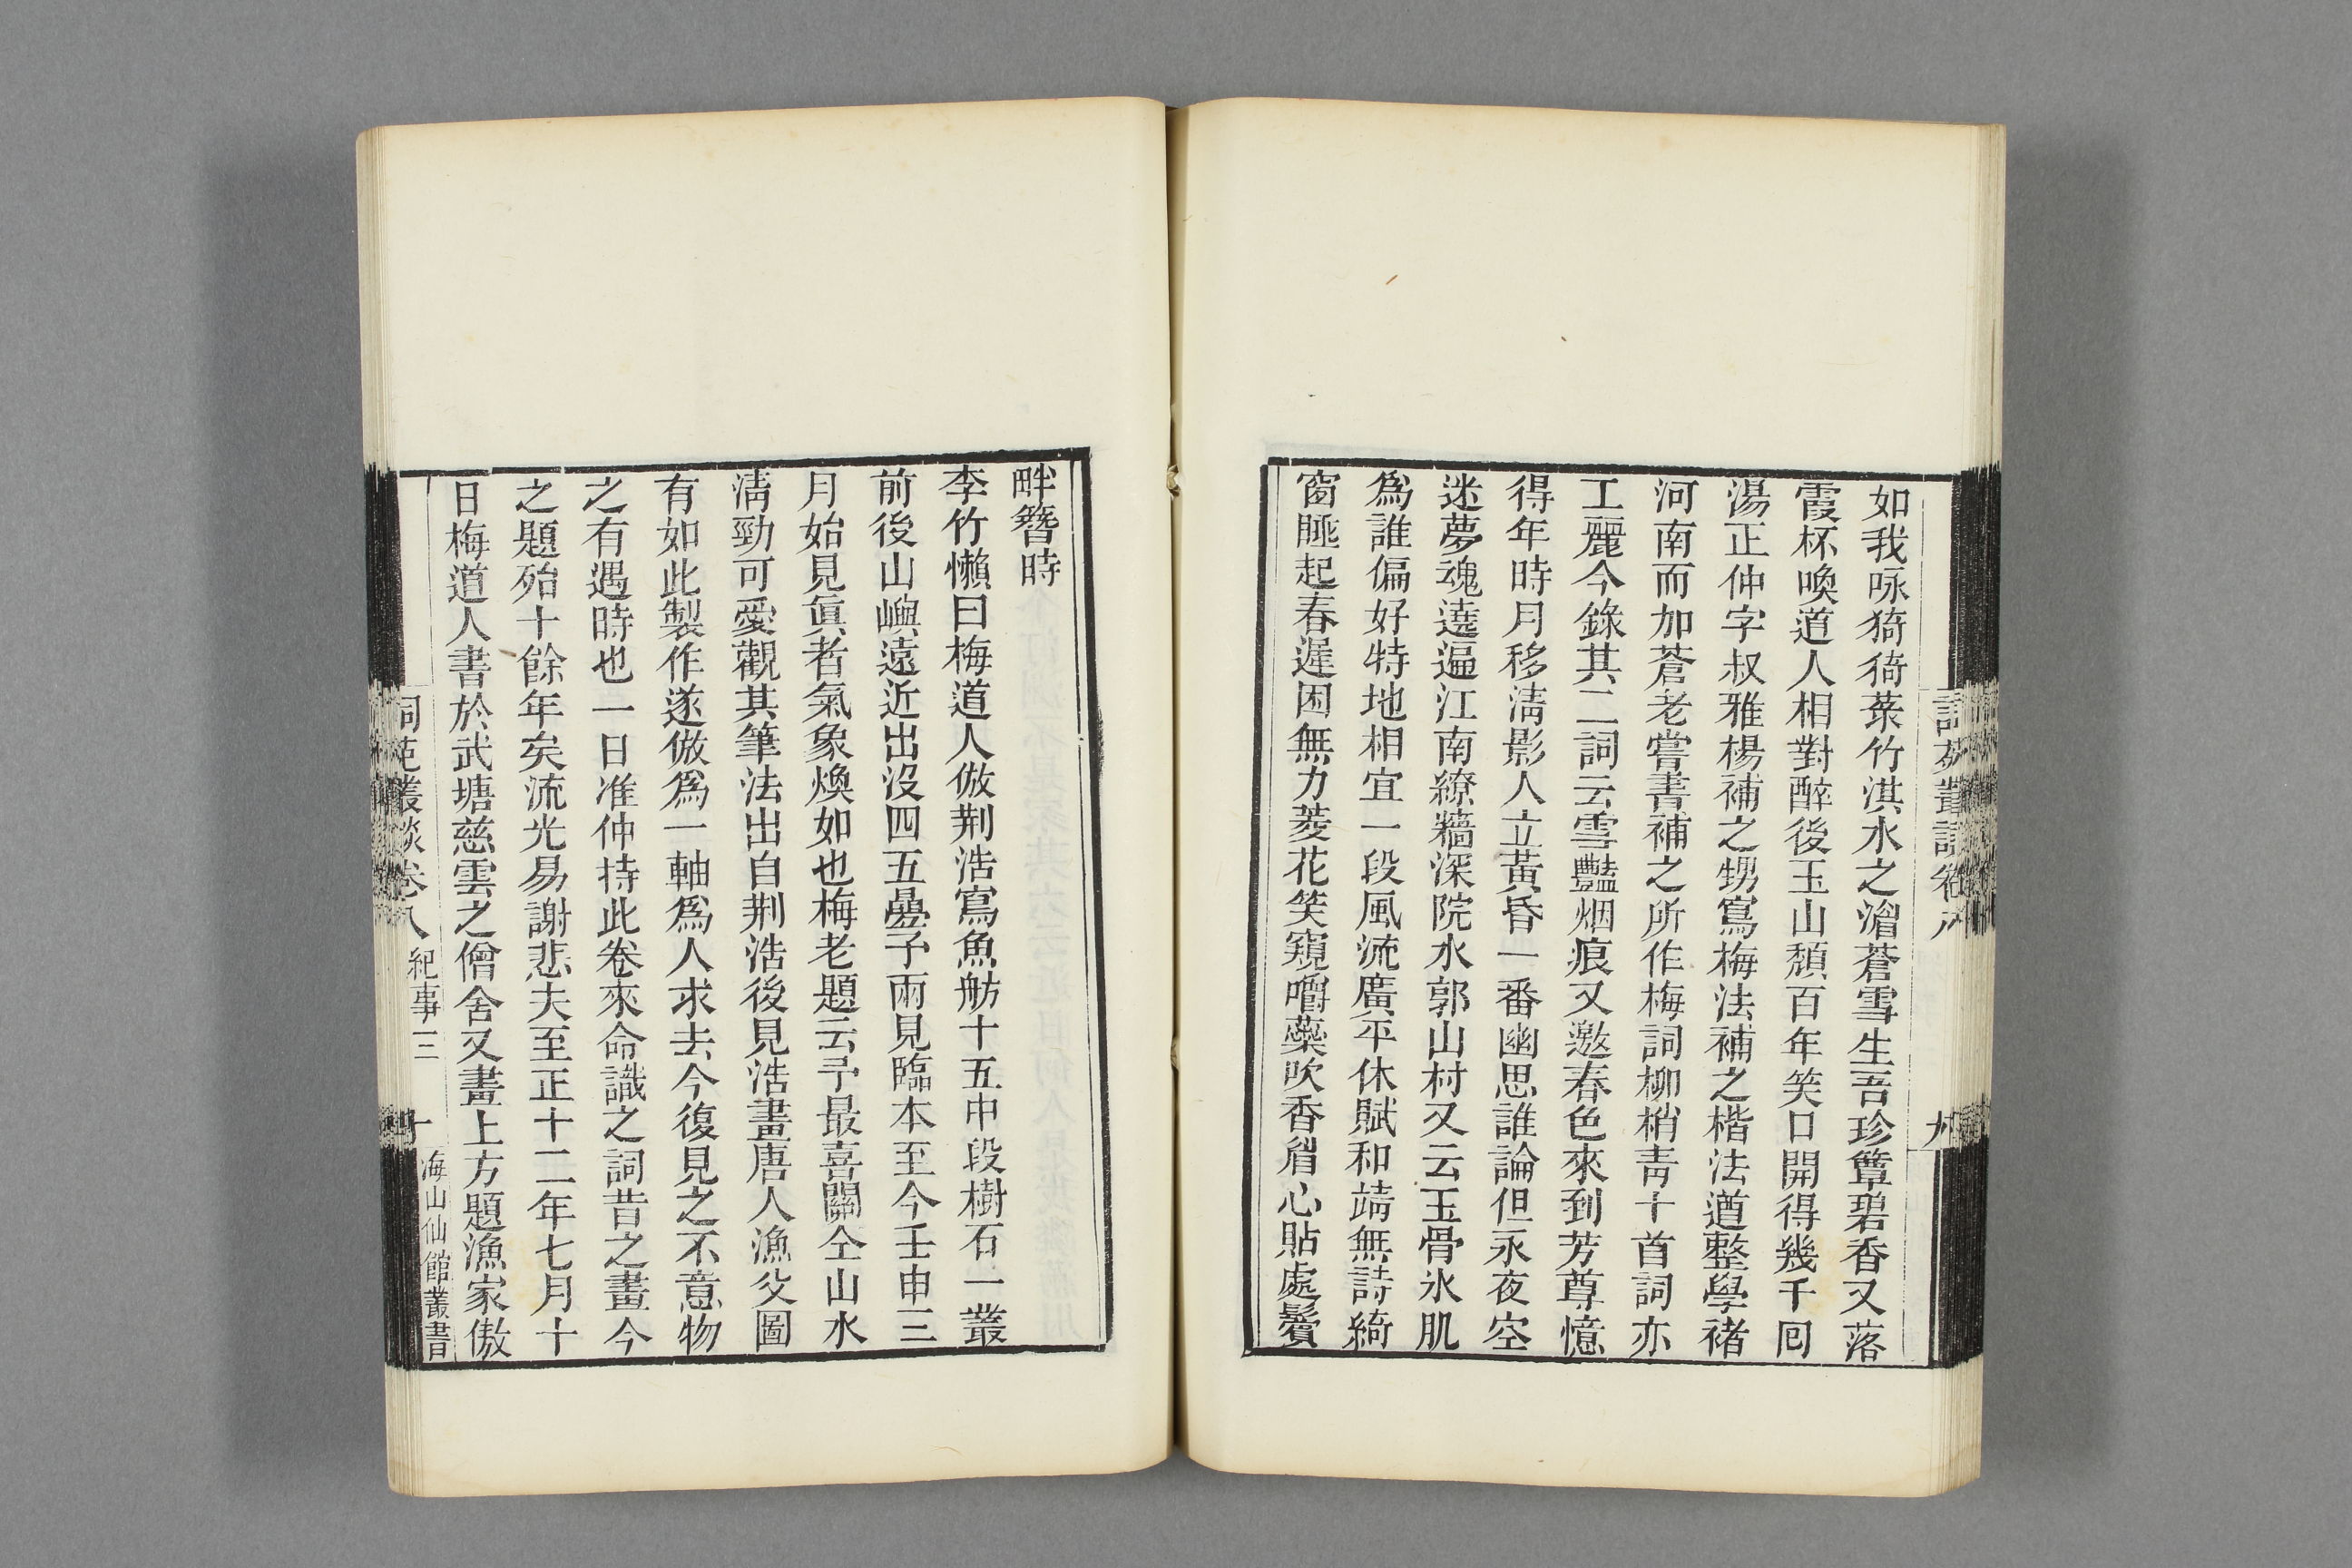 詞苑叢談卷八
九
如我咏猗猗菉竹淇水之澮蒼雪生吾珍簟碧香又落
霞杯喚道人相對醉後玉山頹百年笑口開得幾千囘
湯正仲字叔雅楊補之甥寫梅法補之楷法遒整學褚
河南而加蒼老嘗書補之所作梅詞柳梢靑十首詞亦
工麗今錄其二詞云雪豔烟痕又邀春色來到芳尊憶
得年時月移淸影人立黃昏一番幽思誰論但永夜空
迷夢魂遶遍江南繚牆深院水郭山村又云玉骨氷肌
爲誰偏好特地相宜一段風流廣平休賦和靖無詩綺
窗睡起春遲困無力菱花笑窺嚼蘂吹香眉心貼處鬢
畔簪時
李竹懶曰梅道人倣荆浩寫魚舫十五中段樹石一叢
前後山嶼遠近出沒四五疊予兩見臨本至今壬申三
月始見眞者氣象煥如也梅老題云予最喜關仝山水
淸勁可愛觀其筆法出自荆浩後見浩畫唐人漁父圖
有如此製作遂倣爲一軸爲人求去今復見之不意物
之有遇時也一日准仲持此卷來命識之詞昔之畫今
之題殆十餘年矣流光易謝悲夫至正十二年七月十
日梅道人書於武塘慈雲之僧舍又畫上方題漁家傲
詞苑叢談卷八 紀事三
十
海山仙館叢書